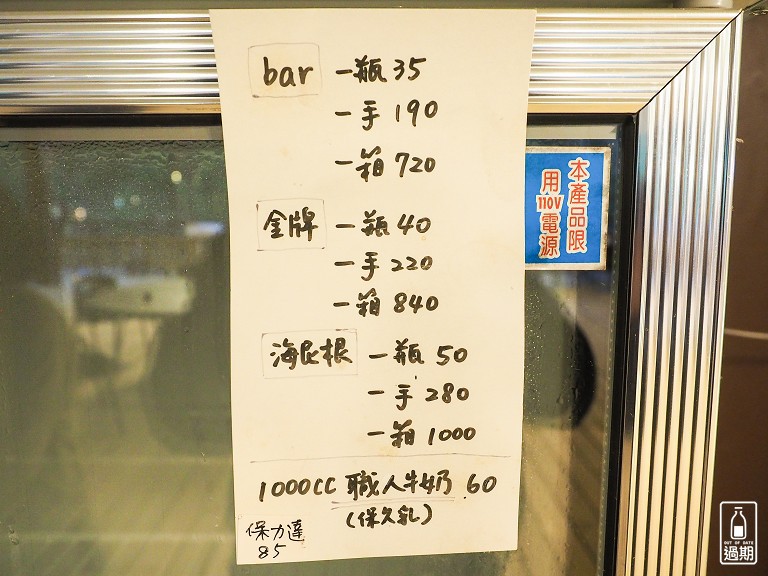 bar 一瓶 35
一手 190
一箱 720
金牌 一瓶 40
一手 220
一箱 840
海尼根 一瓶 50
一手 280
一箱 1000
1000CC 職人牛奶 60
(保久乳)
保力達
85
本產品限
用110V電源
OUT OF DATE
過期